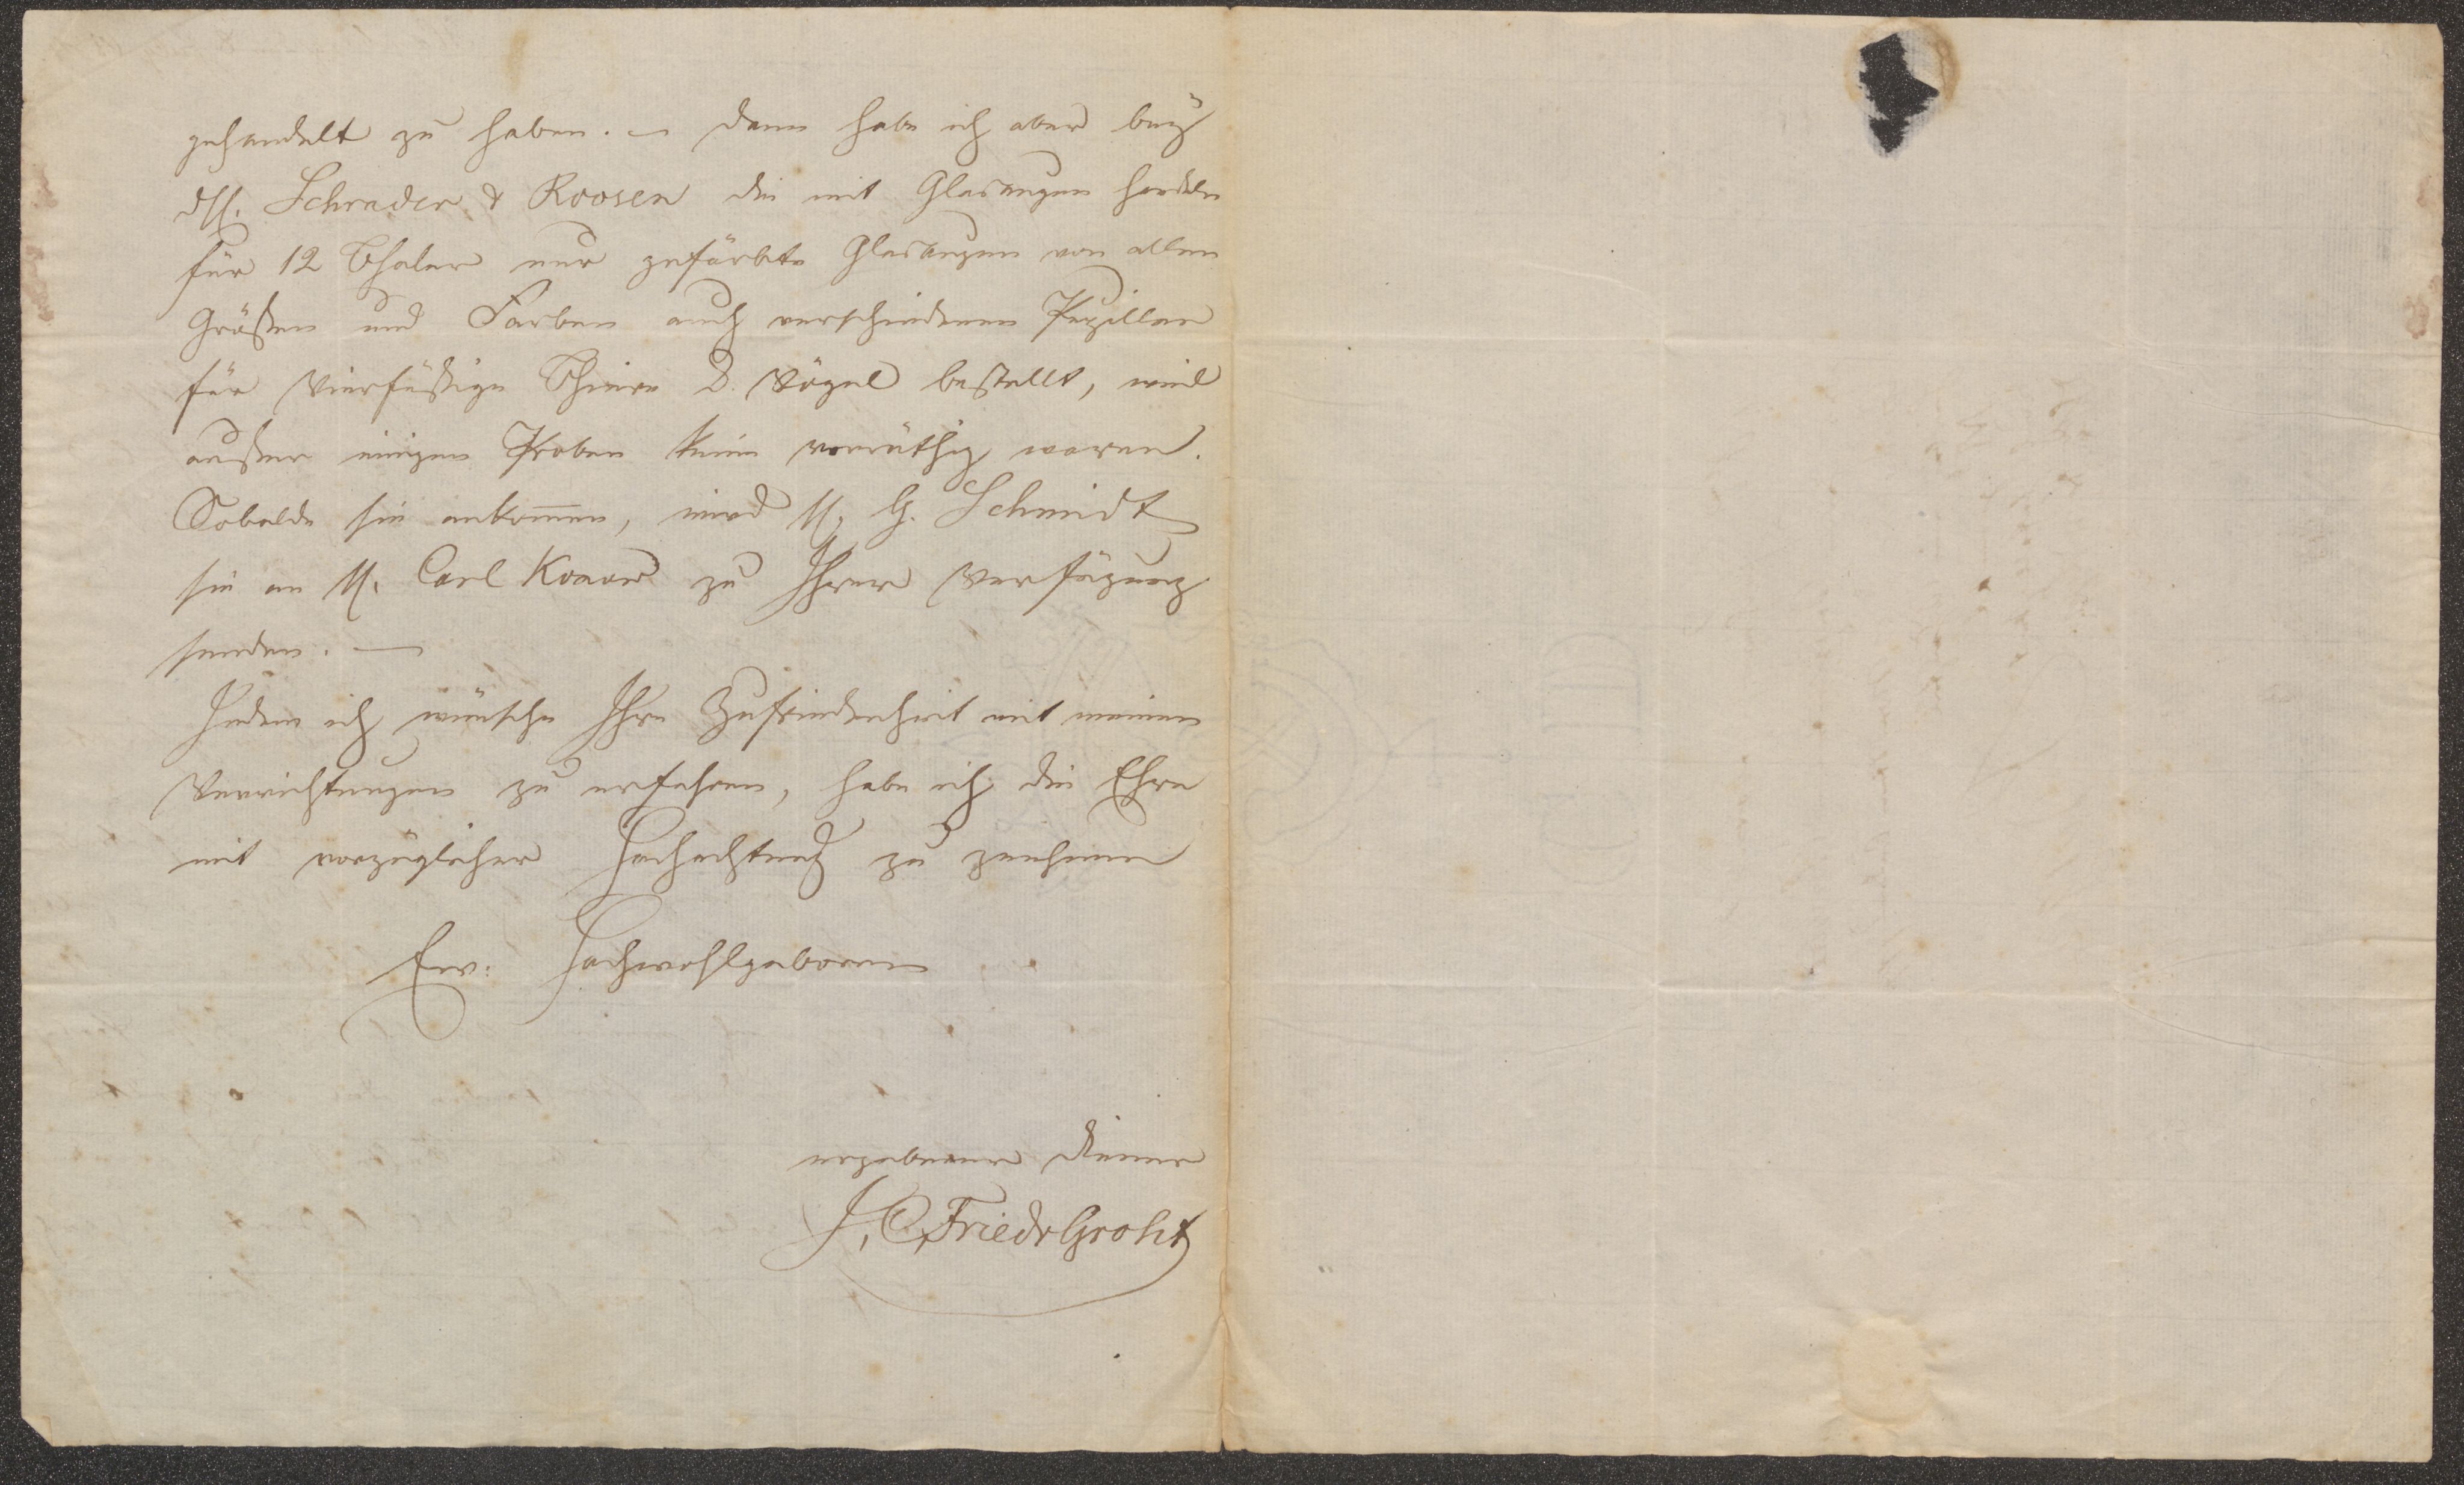 gehandelt zu haben. – Dann habe ich aber bey
dHl. Schrader & Roosen die mit Glasaugen handeln
für 12 Thaler nur gefärbte Glasaugen von allen
Größen und Farben auch verschiedenen Pupillen
für Vierfüßige Thiere & Vögel bestellt, weil
außer einigen Proben keine vorräthig waren.
Sobalde sie ankom̅en, wird H. G. Schmidt
sie an H. Carl zu Ihrer Verfügung
senden. —
Indem ich wünsche Ihre Zufriedenheit mit meinen
Verrichtungen zu erfahren, habe ich die Ehre
mit vorzüglicher Hochachtung zu zeichnen
Ew: Hochwohlgeboren
ergebener Diener
J. C. Friedr Groht